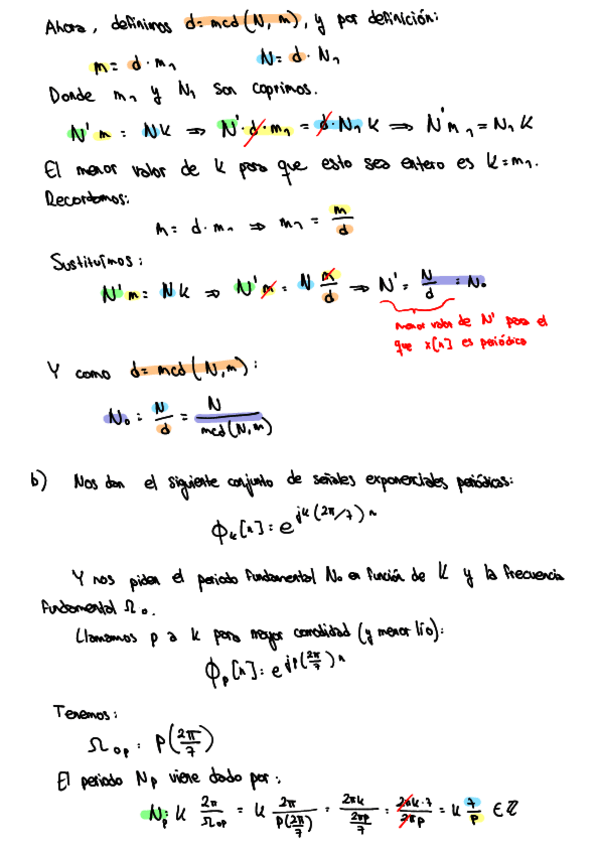 Ahora, definimos d = mcd(N, m), y por definición:
m = d · m₁    N = d · N₁
Donde m₁ y N₁ son coprimos.
N' m = Nk ⇒ N' · d · m₁ = d · N₁ k ⇒ N' m₁ = N₁ k
El menor valor de k para que esto sea entero es k = m₁.
Recordamos:
m = d · m₁ ⇒ m₁ = m/d
Sustituímos:
N' m = N k ⇒ N' m = N m/d ⇒ N' = N/d = N₀
menor valor de N' para el
que x[n] es periódica
Y como d = mcd(N, m):
N₀ = N/d = N/mcd(N, m)
b) Nos dan el siguiente conjunto de señales exponenciales periódicas:
ϕₖ[n] = e^{jk(2π/7)n}
Y nos piden el periodo fundamental N₀ en función de k y la frecuencia
fundamental Ω₀.
Llamamos p a k para mayor comodidad (y menor lío):
ϕₚ[n] = e^{jp(2π/7)n}
Tenemos:
Ω₀ₚ = p(2π/7)
El periodo Nₚ viene dado por:
Nₚ = k 2π/Ω₀ₚ = k 2π/(p(2π/7)) = 2πk/(2πp/7) = 2πk·7/2πp = k 7/p ∈ ℤ